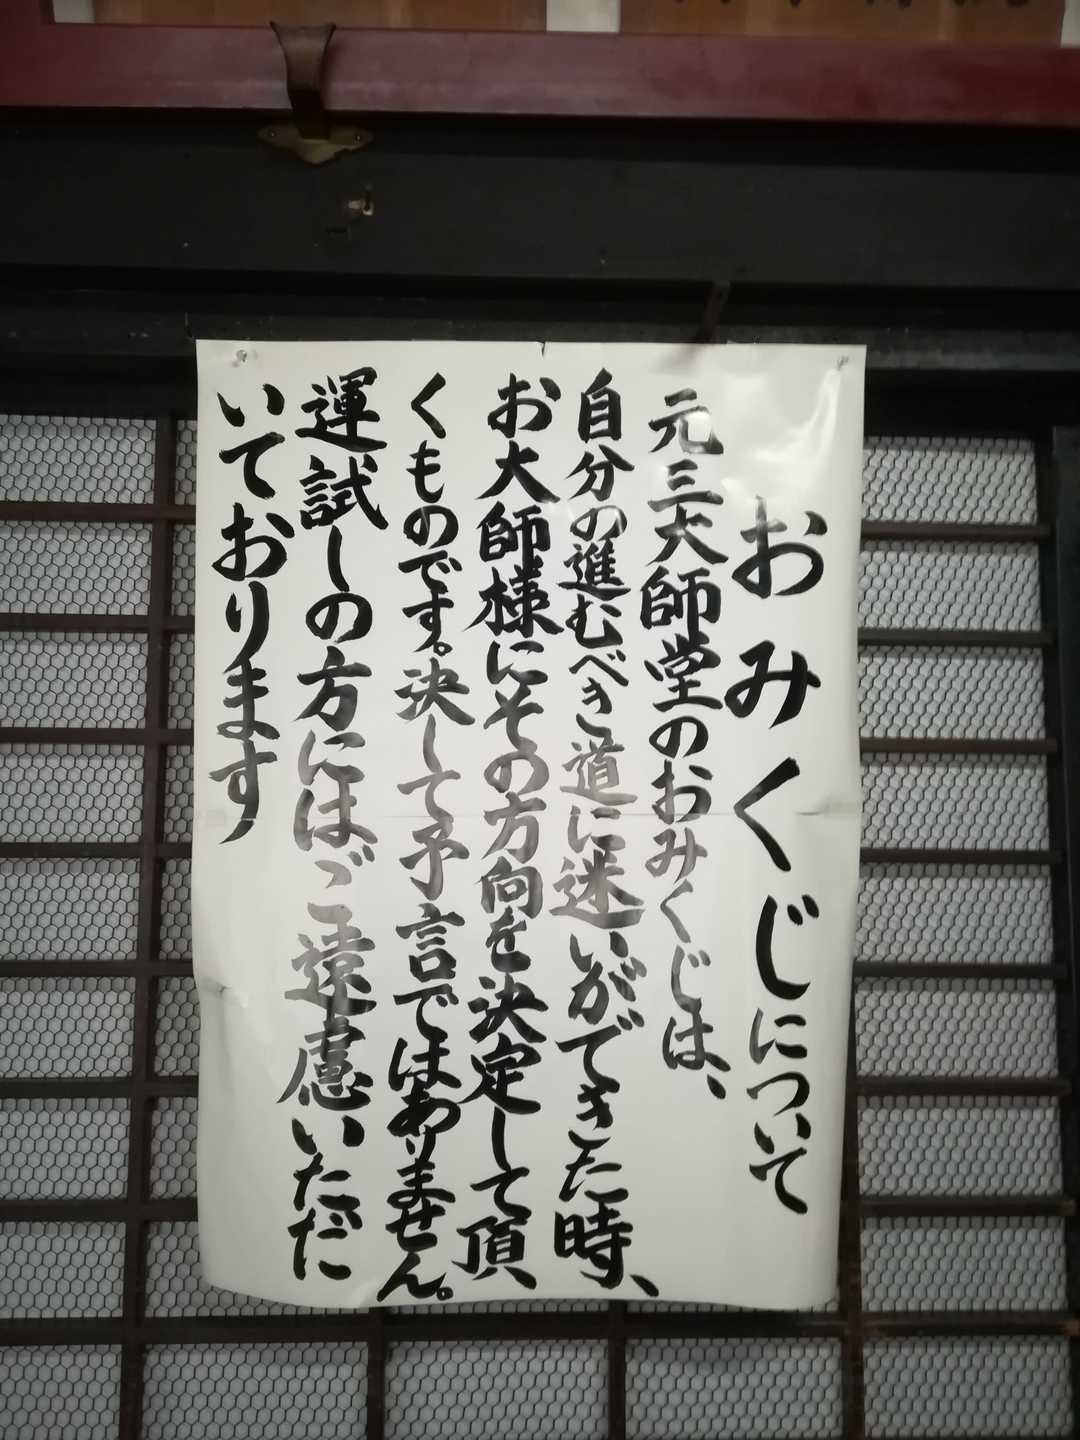 おみくじについて
元三大師堂のおみくじは、
自分の進むべき道に迷いができた時、
お大師様にその方向を決定して頂
くものです。決して予言ではありません。
運試しの方にはご遠慮いただ
いております